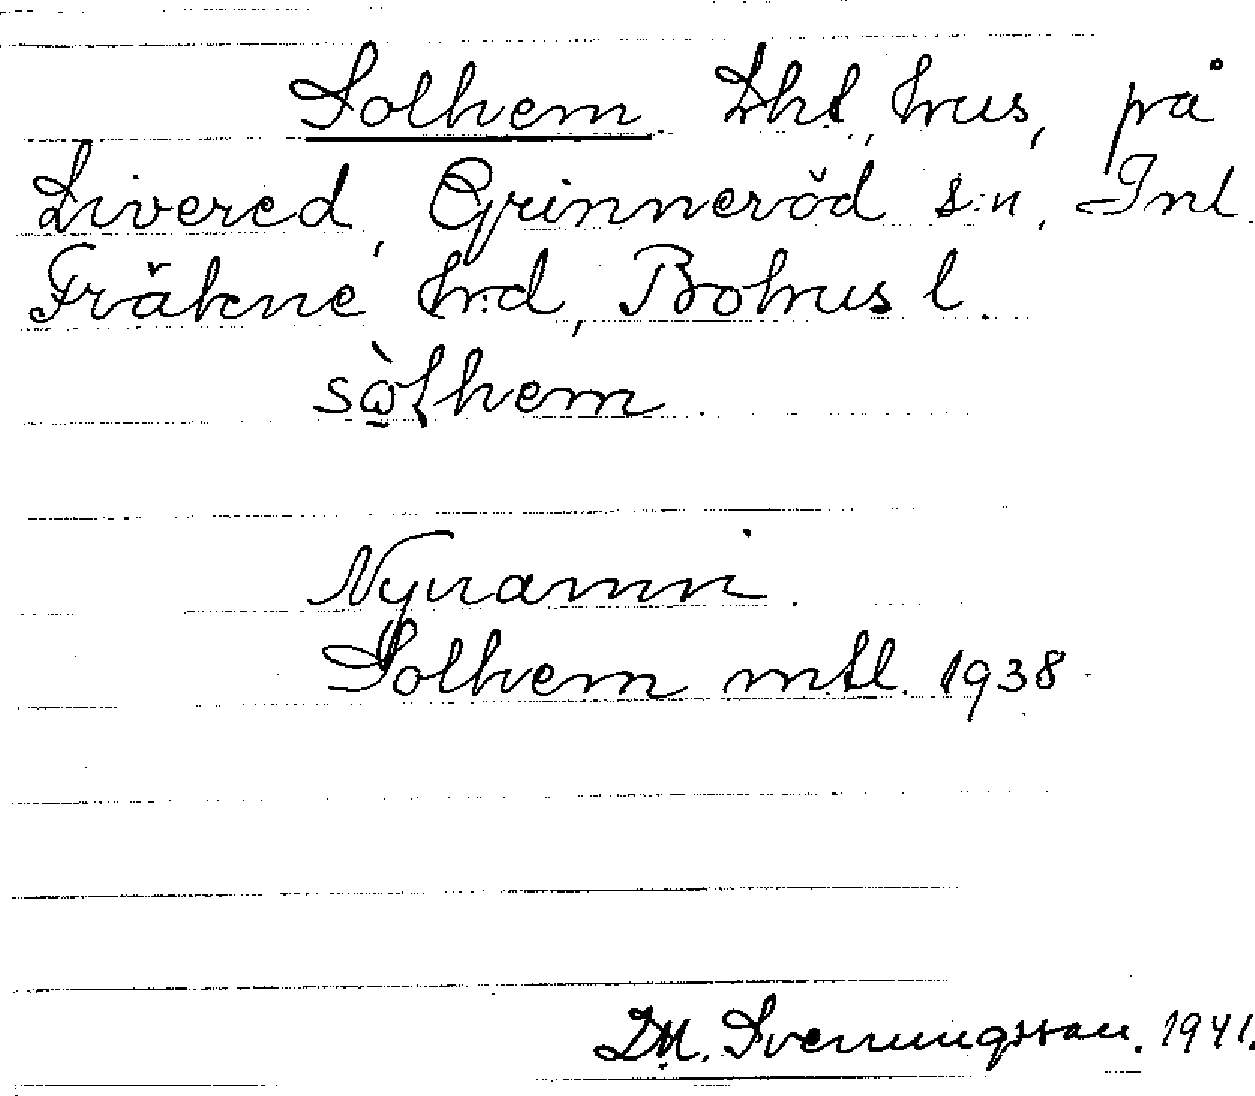 Solhem Lht, hus, på
Livered, Grinneröd s:n, Inl.
Fräkne hrd, Bohus l.
sὼ̲lhem
Nynamn.
Solhem mtl. 1938
D.M. Svenningsson. 1941.